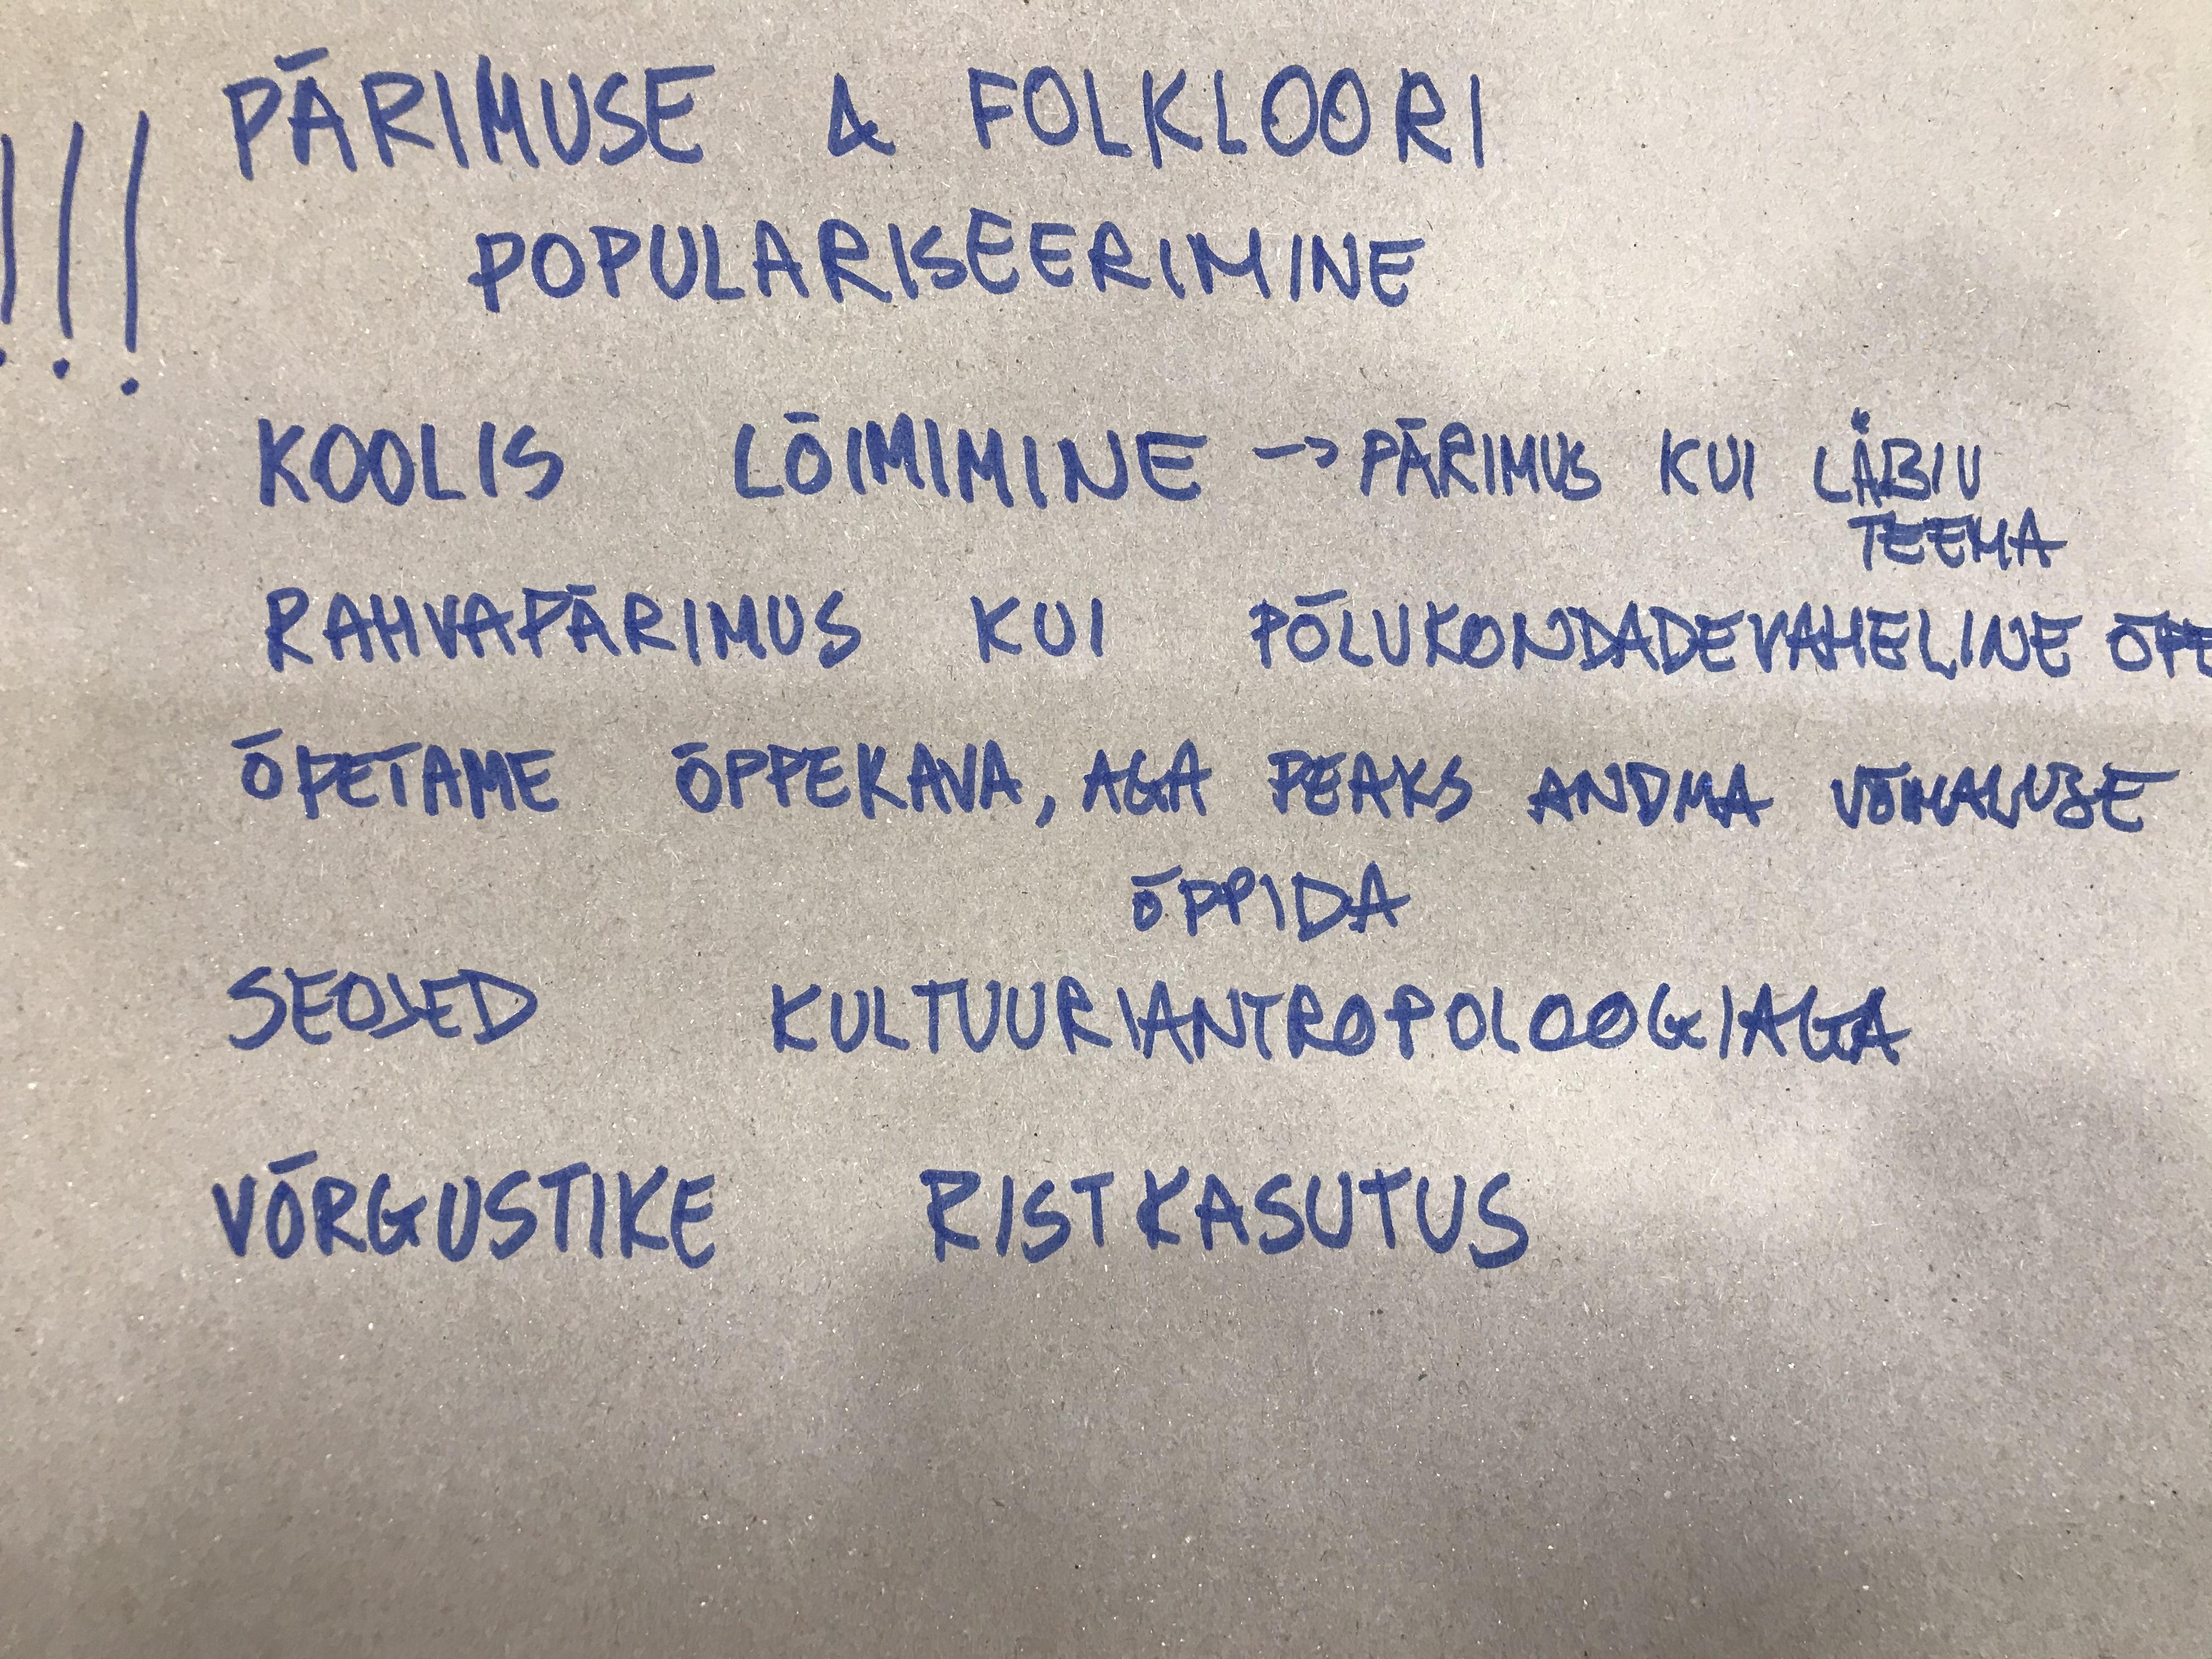 !!! PÄRIMUSE & FOLKLOORI
POPULARISEERIMINE
KOOLIS LÕIMIMINE → PÄRIMUS KUI LÄBIV
TEEMA
RAHVAPÄRIMUS KUI PÕLVKONDADEVAHELINE ÕPE
ÕPETAME ÕPPEKAVA, AGA PEAKS ANDMA VÕIMALUSE
ÕPPIDA
SEOSED KULTUURIANTROPOLOOGIAGA
VÕRGUSTIKE RISTKASUTUS